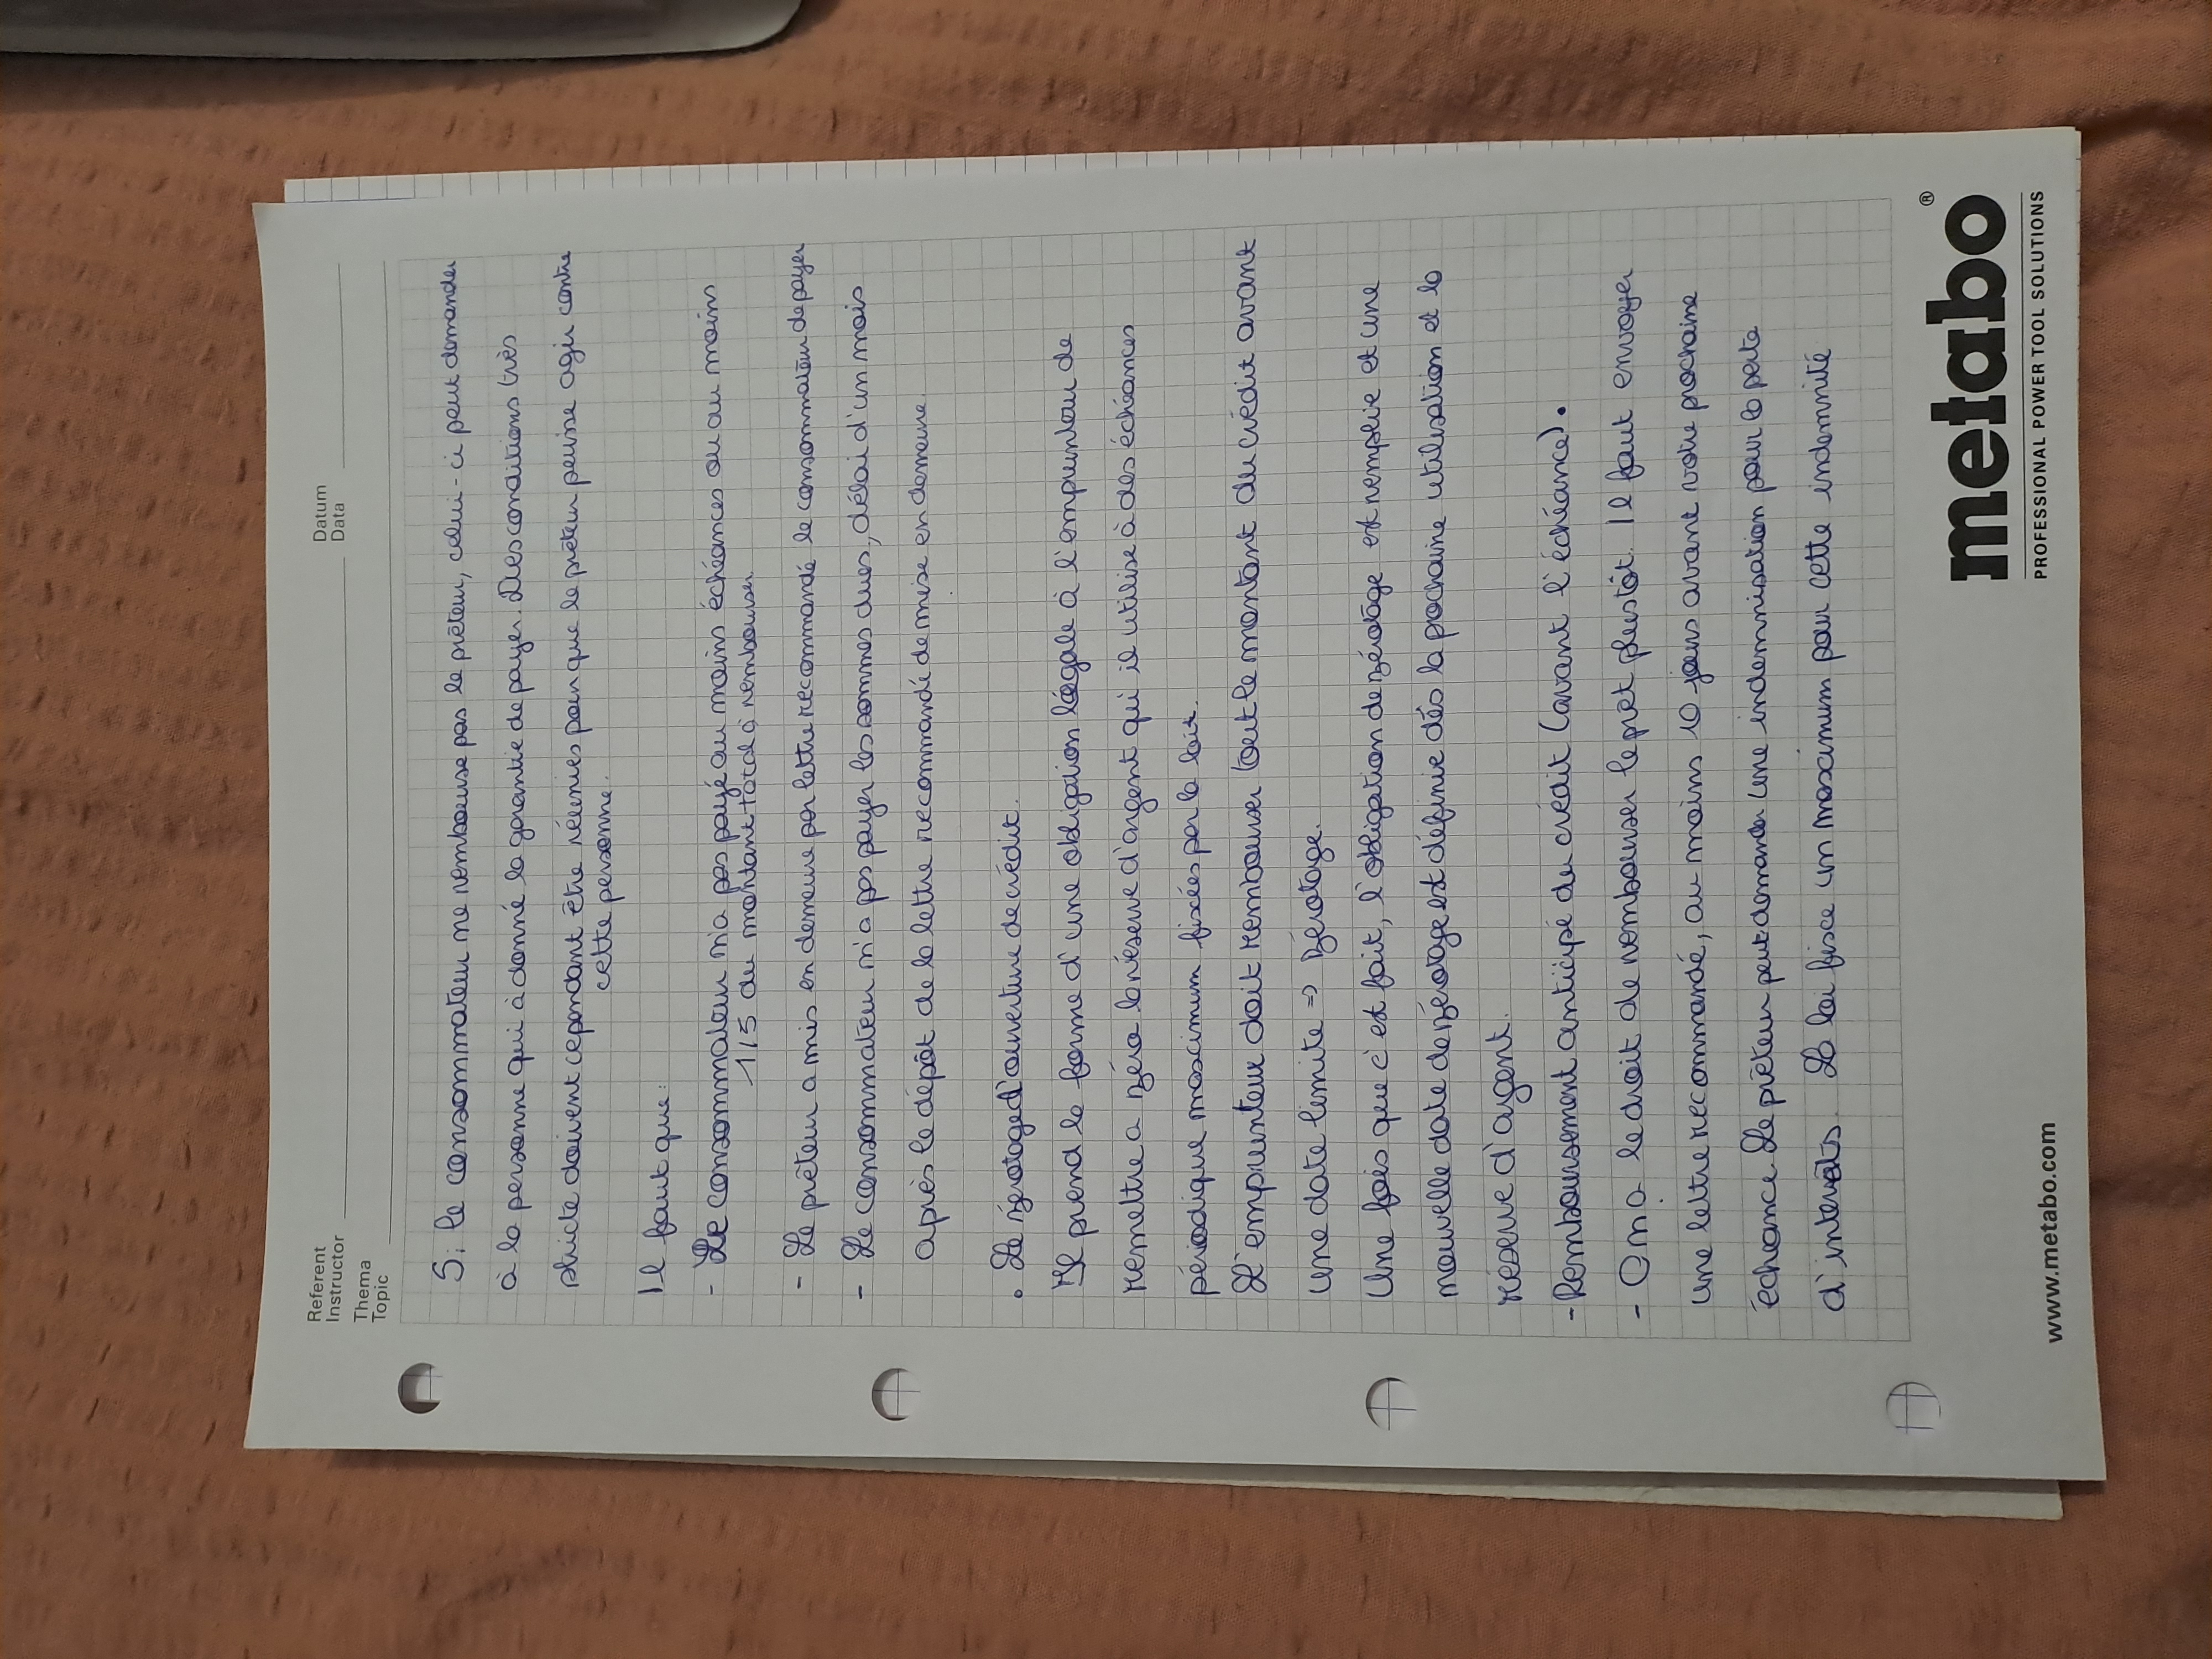 Referent
Instructor
Datum
Data
Thema
Topic
Si le consommateur ne rembourse pas le prêteur, celui-ci peut demander
à la personne qui à donné la garantie de payer. Des conditions très
stricte doivent cependant être réunies pour que le prêteur puisse agir contre
cette personne.
Il faut que:
- Le consommateur n'a pas payé au moins échéances ou au moins
1/5 du montant total à rembourser.
- Le prêteur a mis en demeure par lettre recommandé le consommateur de payer
- Le consommateur n'a pas payer les sommes dues, délai d'un mois
après le dépôt de la lettre recommandé de mise en demeure.
• Le zérotage d'ouverture de crédit.
Il prend la forme d'une obligation légale à l'emprunteur de
remettre a zéro la réserve d'argent qui il utilise à des échéances
périodique maximum fixées par la loi.
L'emprunteur doit rembourser tout le montant du crédit avant
une date limite => zérotage.
Une fois que c'est fait, l'obligation de zérotage est remplie et une
nouvelle date de zérotage est définie dès la prochaine utilisation et la
réserve d'argent.
- Remboursement anticipé du crédit (avant l'échéance).
- On a le droit de rembourser le prêt plustôt. Il faut envoyer
une lettre recommandé, au moins 10 jours avant votre prochaine
échéance Le prêteur peut demander une indemnisation pour la perte
d'intérêts. La loi fixe un maximum pour cette indemnité
www.metabo.com
metabo®
PROFESSIONAL POWER TOOL SOLUTIONS